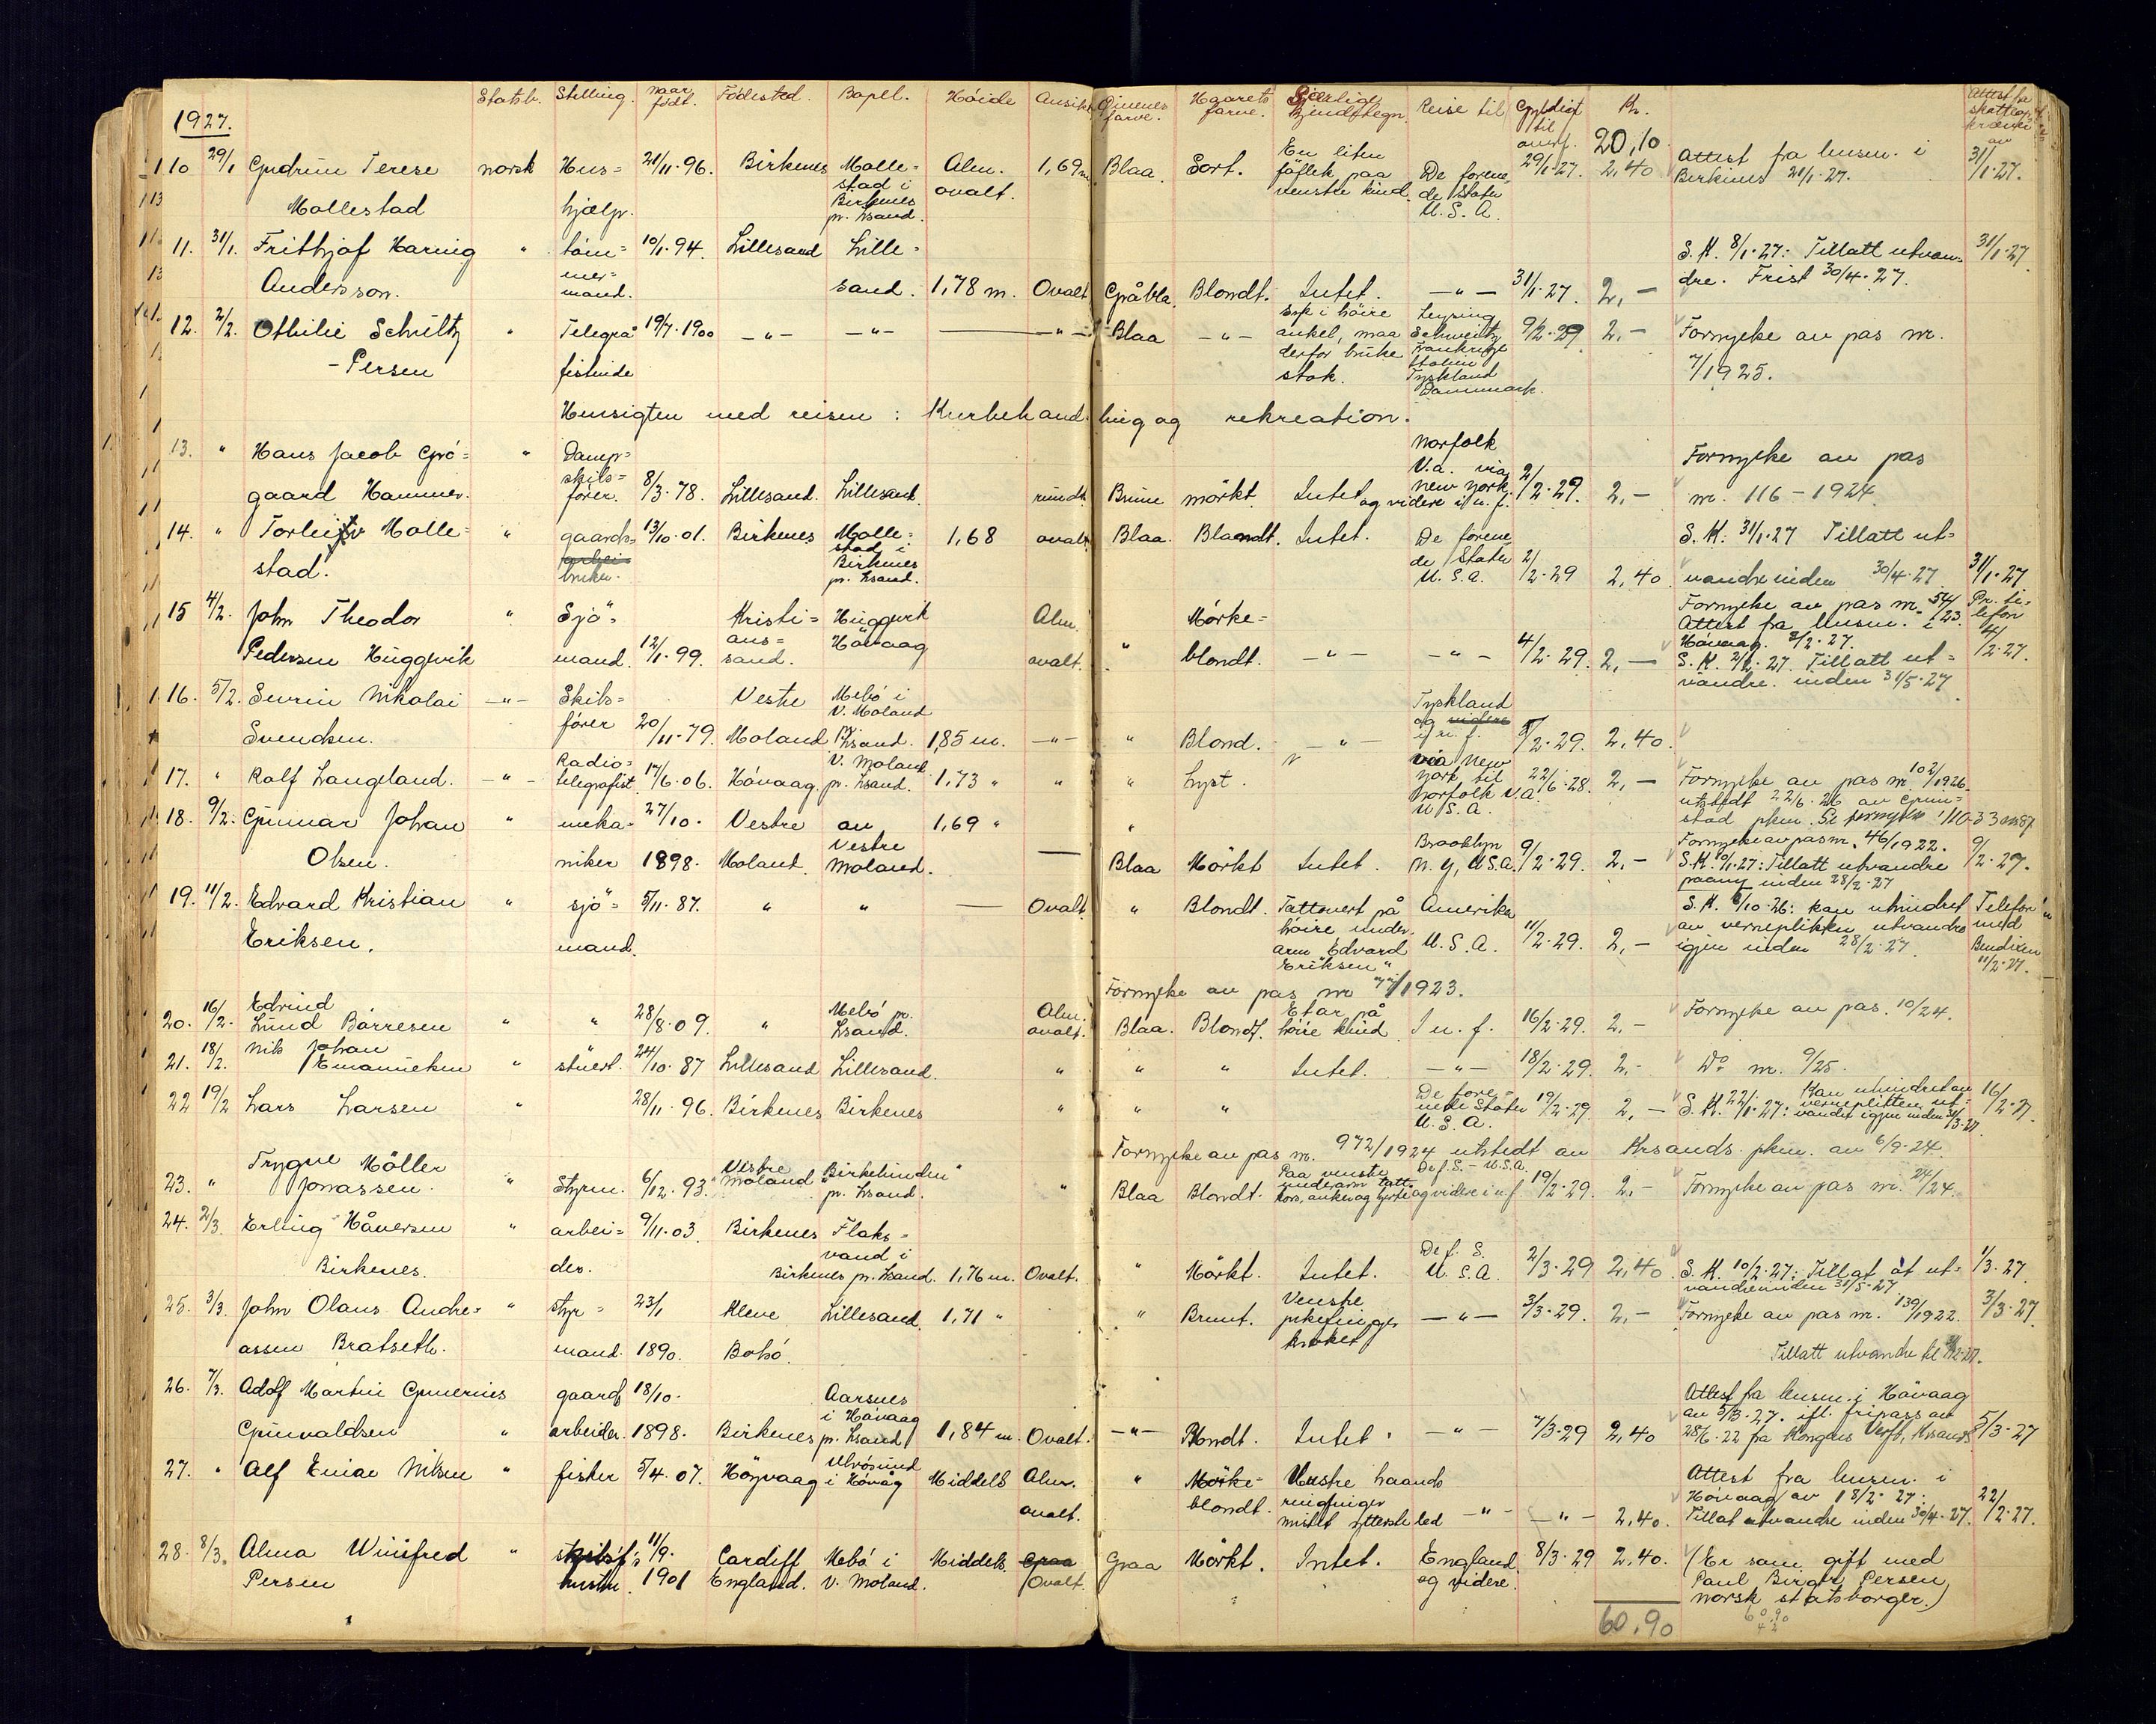 1927.
Statsb. Stilling. Naar født. Fødested. Bopæl. Høide Ansikt Øinenes farve. Haarets farve. Særlige kjendetegn. Reise til Gyldigt til Kr. Attest fra
overf. 20,10
10 29/1 Gudrun Terese norsk Hus= 21/11.96. Birkenes Molle= Alm. 1,69 m Blaa. Sort. En liten 29/1.27. 2,40 Attest fra lensm. i 31/1.27.
Mollestad hjælp. stad i ovalt. føflek paa De forene= Birkenes 21/1.27.
Birkenes venstre kind. de Stater
pr. Lsand. U.S.A.
11. 31/1. Frithjof Harring " tøm= 10/1.94. Lillesand Lille= S.K. 8/1.27: Tillatt utvan= 31/1.27
Andersson. mer= sand. 1,78 m. Ovalt Gråbla Blondt. Intet. —"— 31/1.27. 2,— dre. Frist 30/4.27.
mand.
12. 2/2. Othilie Schultz " Telegra 19/7.1900 —"— —"— —"— Blaa —"— i høire Leysing 9/2.29 2,— Fornyelse av pas nr.
-Persen fistinde ankel, maa Schweitz 7/1925.
derfor bruke Frankrige
stok. Italien
Tyskland
Danmark.
Hensigten med reisen: Kurbehandling og rekreation.
13. " Hans Jacob Grø= " Damp= Norfolk Fornyelse av pas
gaard Hammer. skibs= 8/3.78. Lillesand. Lillesand. rundt Brune mørkt Intet V.a. via 2/2.29. 2,— nr. 116-1924
fører. New York
og videre i u. f.
14. " Torleif Molle= " gaards= 13/10.01. Birkenes Molle= 1,68 ovalt Blaa. Blondt. Intet. De forene= S.K. 31/1.27 Tillatt ut=
stad. arbei= stad i de Stater 2/2.29 2,40 vandre inden 30/4.27 31/1.27
bruker. Birkenes U.S.A.
pr. Lsand.
15 4/2. John Theodor " Sjø= Kristi= Huggevik Alm. Mørke= Fornyelse av pas nr. 54/23. Pr. te=
Pedersen Huggevik mand. 12/1.99. ans= Høvaag ovalt. " blondt. —"— —"— 4/2.29. 2,— Attest fra lensm. i lefon
sand. Høvaag. 2/2.27. 4/2.27.
S.K. 2/2.27. Tillatt ut=
vandre inden 31/5.27
16. 5/2. Severin Nikolai —"— Skibs= Vestre Mebø i Tyskland
Svendsen. fører 20/11.79. Moland V. Moland 1,85 m. —"— " Blond. —"— og videre 5/2.29. 2,40.
pr. Lsand. i u. f.
17. " Rolf Langeland. —"— Radio= 17/6.06. Høvaag V. Moland 1,73 " " " Lyst. " via New 22/6.28. 2,— Fornyelse av pas nr. 102/1926
telegrafist pr. Lsand. York til utstedt 22/6.26 av Grim=
Norfolk V.A. stad pkm.
U.S.A.
18. 9/2. Gunnar Johan " meka= 27/10. Vestre av 1,69 " " Brooklyn Fornyelse av pas nr. 46/1922.
Olsen. niker 1898. Moland. Vestre — Blaa Mørkt Intet. N.Y, U.S.A. 9/2.29. 2,— S.K. 10/1.27: Tillatt utvandre 9/2.27.
Moland. paany inden 28/2.27
19. 11/2. Edvard Kristian " sjø= 5/11.87. " " — Ovalt. " Blondt. Tattovert på Amerika S.K. 6/10.26: kan uhindret Telefon
Eriksen. mand. høire under= U.S.A. 11/2.29. 2,— av verneplikten utvandre med
arm "Edvard igjen inden 28/2.27. Bendixen
Eriksen" 11/2.27.
Fornyelse av pas nr /1923.
20. 16/2. Edvind " " 28/8.09. " Mebø pr. Alm. Blaa. Blondt. Et ar på I u. f. 16/2.29. 2,— Fornyelse av pas. 10/24.
Lund Børresen Lsand. ovalt. høire kind
21. 18/2. Nils Johan " stuert. 24/10.87 Lillesand Lillesand. " " " Intet. —"— 18/2.29. 2,- Do nr. 9/25.
Emanuelsen
22 19/2 Lars Larsen " 28/11.96. Birkenes Birkenes " " " De fore= 19/2.29. 2,— S.K. 22/1.27: Kan uhindret av 16/2.27.
nede Stater verneplikten ut=
U.S.A. vandre igjen inden 31/3.27
Fornyelse av pas nr. 972/1924 utstedt av Krsands pkm. av 6/9.24.
23. " Trygve Møller " Styrm. 6/12.93. Vestre "Birkelunden" " Blaa Blondt. Paa venstre De f. S. - U.S.A. 19/2.29. 2,- Fornyelse av pas nr. 24/24.
Jonassen. Moland pr. Lsand. underarm tatt. og videre i u f
kors, anker og hjerte
24. 2/3. Erling Håversen " arbei= 9/11.03. Birkenes Flaks= De f. S.
Birkenes. der. vand i " Mørkt. Intet. U.S.A. 2/3.29 2,40. S.K. 10/2.27: Tillat åt ut= 1/3.27
Birkenes pr. Lsand. 1,76 m. Ovalt. vandre inden 31/5.27
25. 3/3. John Olaus Andre= " styr= 23/1 Kleve Lillesand. 1,71 " " Brunt. Venstre —"— 3/3.29. 2,- Fornyelse av pas nr. 139/1922. 3/3.27.
assen Bratseth. mand. 1890. Bodø. pekefinger
kroket Tillatt utvandre til
26. 7/3. Adolf Martin Gunerius gaards 18/10. Aarsnes Attest fra lensm. i Høvaag
Grunvaldsen " arbeider. 1898. Birkenes i Høvaag 1,84 m. Ovalt. —"— Blondt. Intet. —"— 7/3.29 2,40 av 5/3.27. ifl. fripass av 5/3.27
pr. Lsand 28/6.22 fra Kongens Verft, Krsands
27. " Alf Einar Nilsen " fisker 5/4.07. Høgvaag Ulvøsund Middels Alm. " Mørke= Venstre haands Attest fra lensm. i
i Høvåg ovalt. blondt. ringfinger —"— —"— 2,40. Høvaag av 18/2.27: 22/2.27.
mistet ytterste led Tillat utvandre inden 30/4.27.
28. 8/3. Alma Winifred " skibsf's 11/9. Cardiff Mebø i Middels Graa Graa Mørkt. Intet. England 8/3.29 2,40. (Er som gift med
Persen hustru. 1901 England. V. Moland. Ovalt. og videre. Paul Birger Persen
norsk statsborger.)
60.90